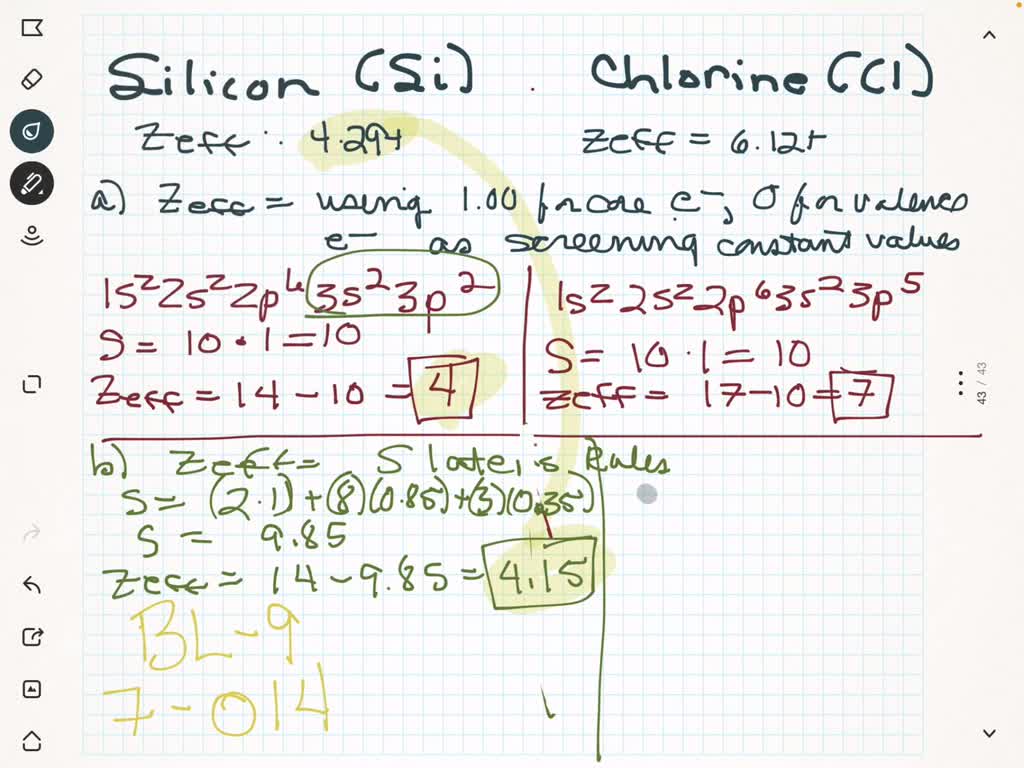 Silicon (Si)
Chlorine (Cl)
Zeff : 4.29+
Zeff = 6.12+
a) Zeff = using 1.00 for core e⁻, 0 for valence
e⁻ as screening constant values
1s²2s²2p⁶3s²3p²
S = 10 · 1 = 10
Zeff = 14 - 10 = 4
1s² 2s² 2p⁶3s²3p⁵
S = 10 · 1 = 10
Zeff = 17-10 = 7
b) Zeff = Slater's Rules
S = (2·1) + (8)(0.85) + (3)(0.35)
S = 9.85
Zeff = 14 - 9.85 = 4.15
BL-9
7-014
43 / 43